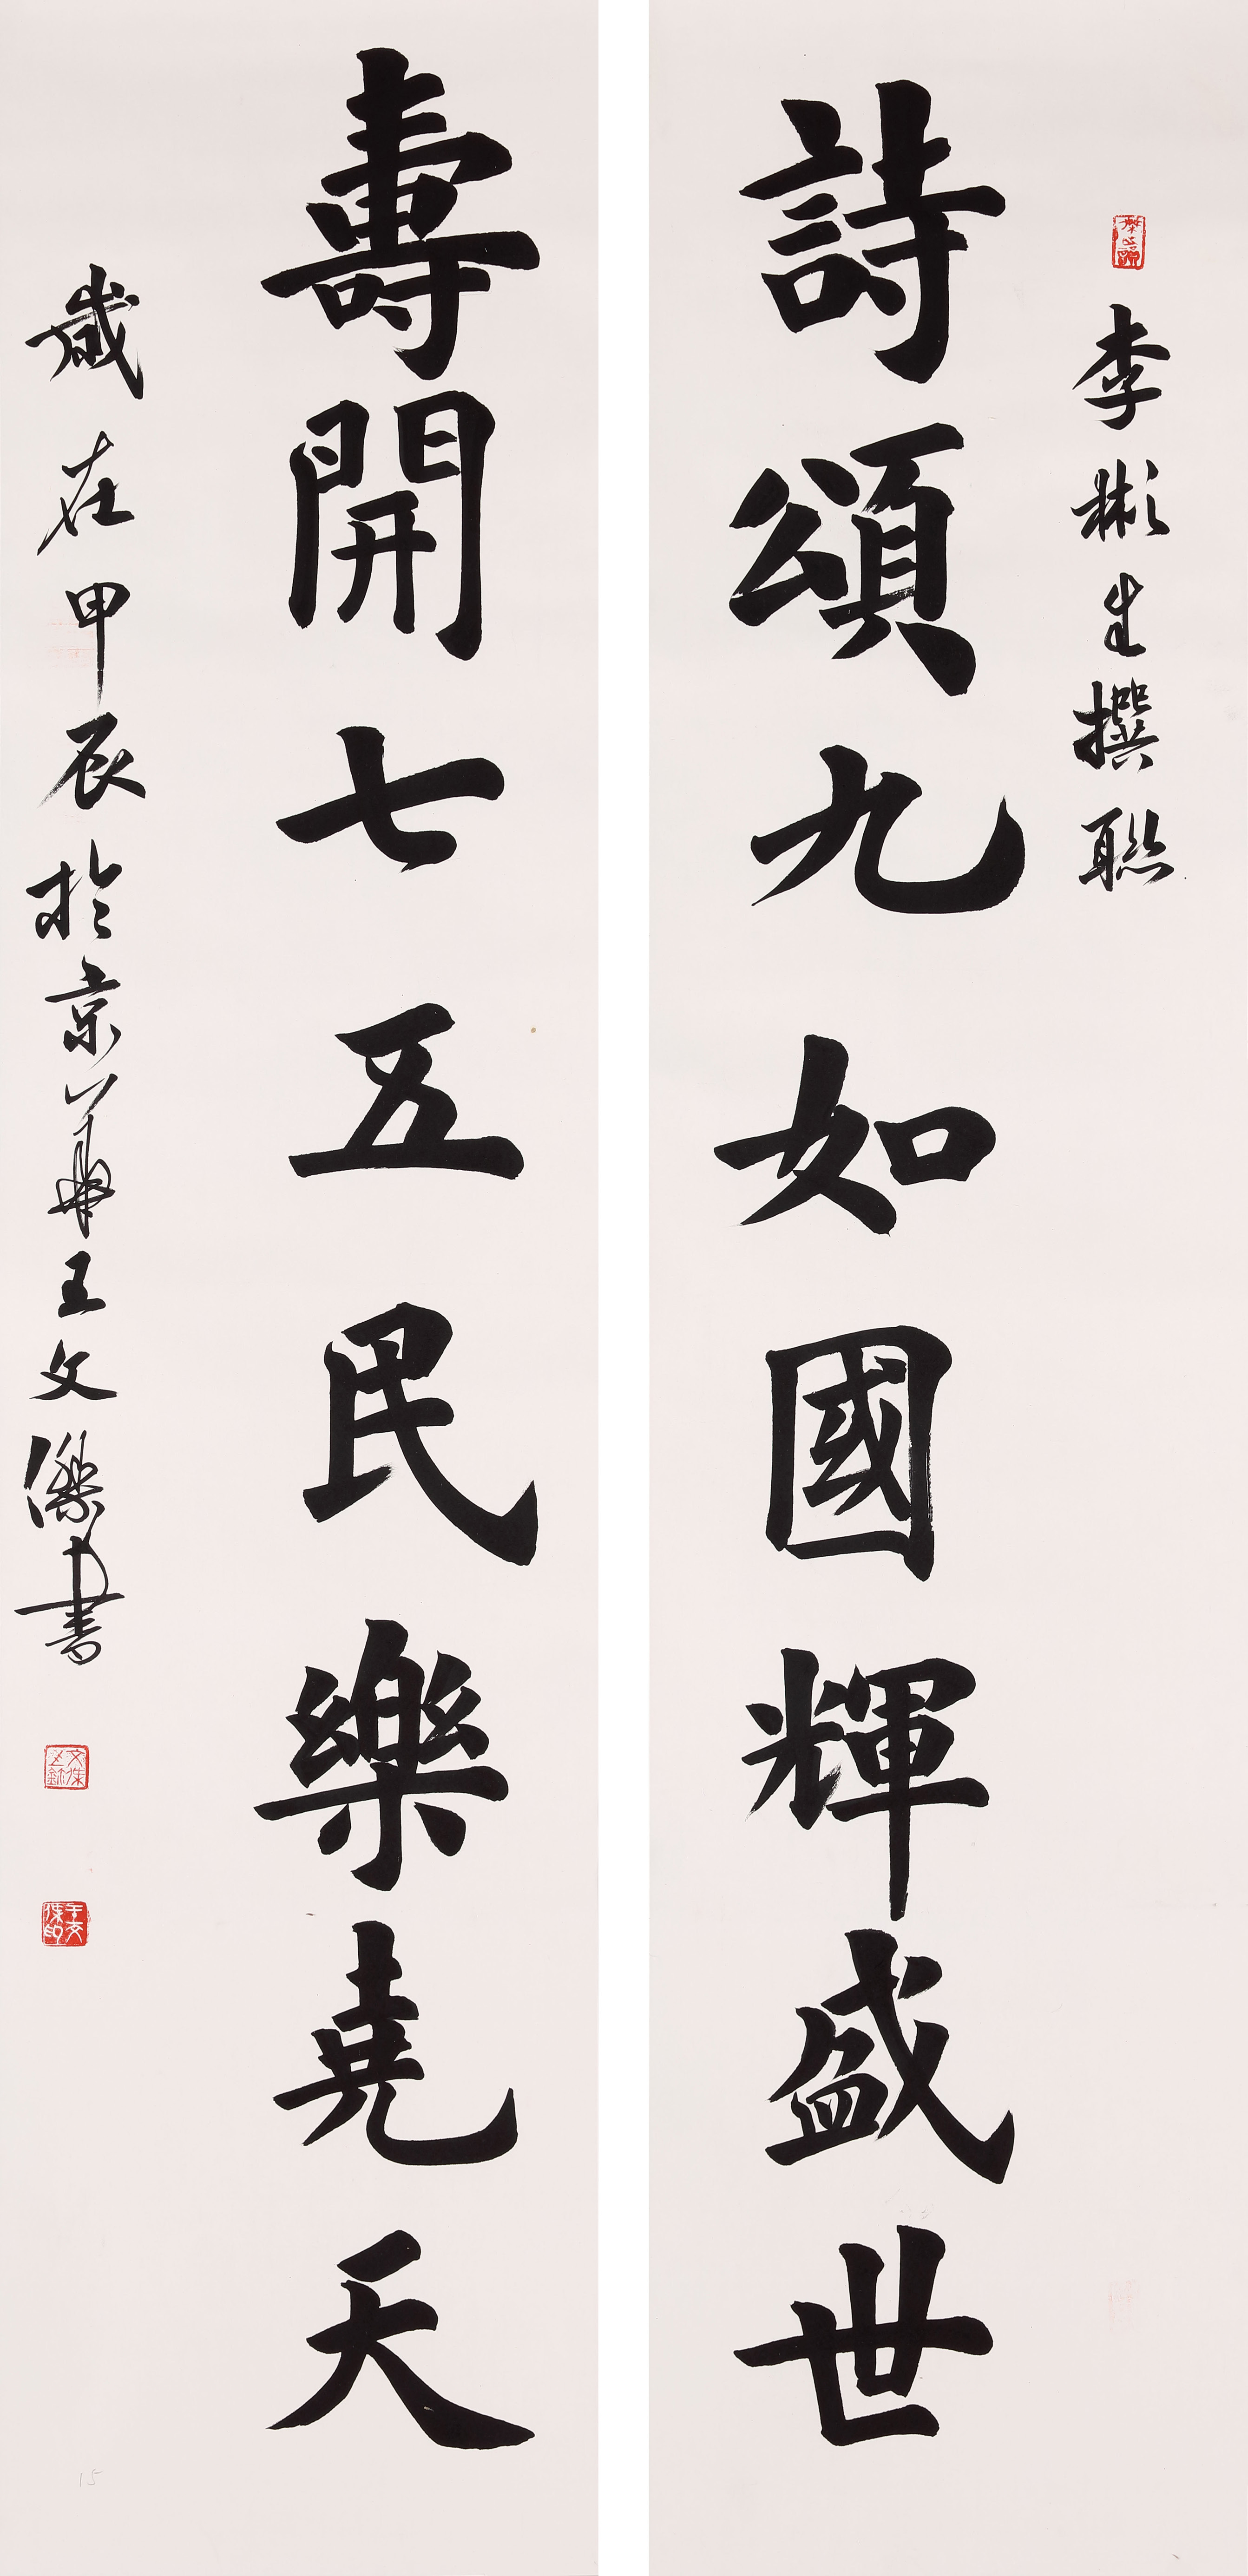 李彬生撰聯
詩頌九如國輝盛世
壽開七五民樂堯天
歲在甲辰於京華王文傑書
15